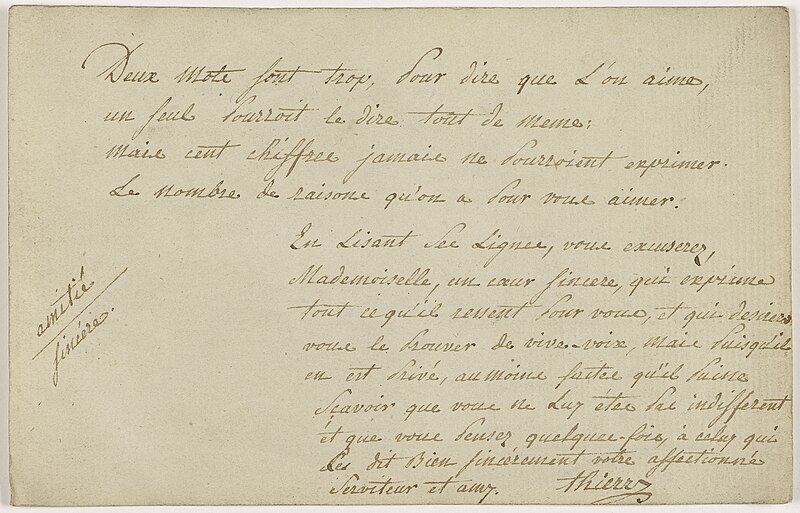 Deux mots sont trop, pour dire que L'on aime,
un seul pourroit le dire tout de meme:
mais cent chiffres jamais ne pourroient exprimer.
Le nombre de raisons qu'on a pour vous aimer.
En Lisant Ses Lignes, vous excuserez,
Mademoiselle, un cœur sincere, qui exprime
tout ce qu'il ressent pour vous, et qui desirera
vous le prouver de vive-voix, mais puisqu'il
en est privé, au moins faites qu'il puisse
Scavoir que vous ne Luy étes pas indifferent
et que vous pensez quelques-fois, à celuy qui
Se dit Bien sincérement votre affectionné
Serviteur et amy. thierry
amitié
sincére.